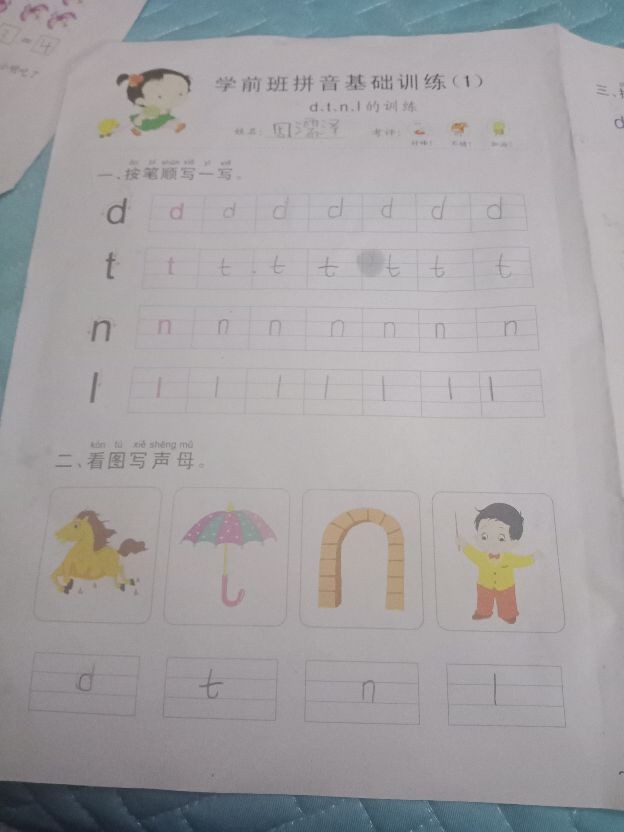 = 4
学前班拼音基础训练(1)
d.t.n.l的训练
姓名: 周濡泽 考评:
àn bǐ shùn xiě yì xiě
一、按笔顺写一写。
d d d d d d d d
t t t t t t t t
n n n n n n n n
l l l l l l l l
kàn tú xiě shēng mǔ
二、看图写声母。
d t n l
三、
d